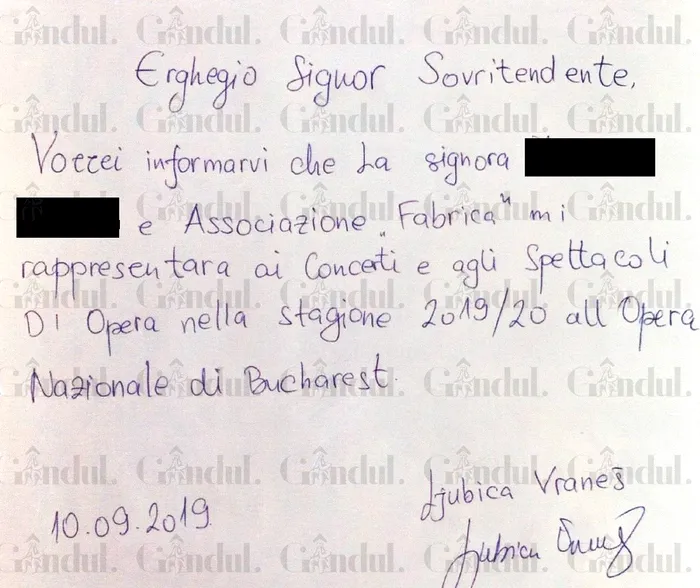 Erghegio Signor Sovritendente,
Vorrei informarvi che La signora
e Associazione „Fabrica" mi
rappresentara ai Concerti e agli Spettacoli
Di Opera nella stagione 2019/20 all Opera
Nazionale di Bucharest.
Ljubica Vraneš
10.09.2019
Ljubica
Gândul.